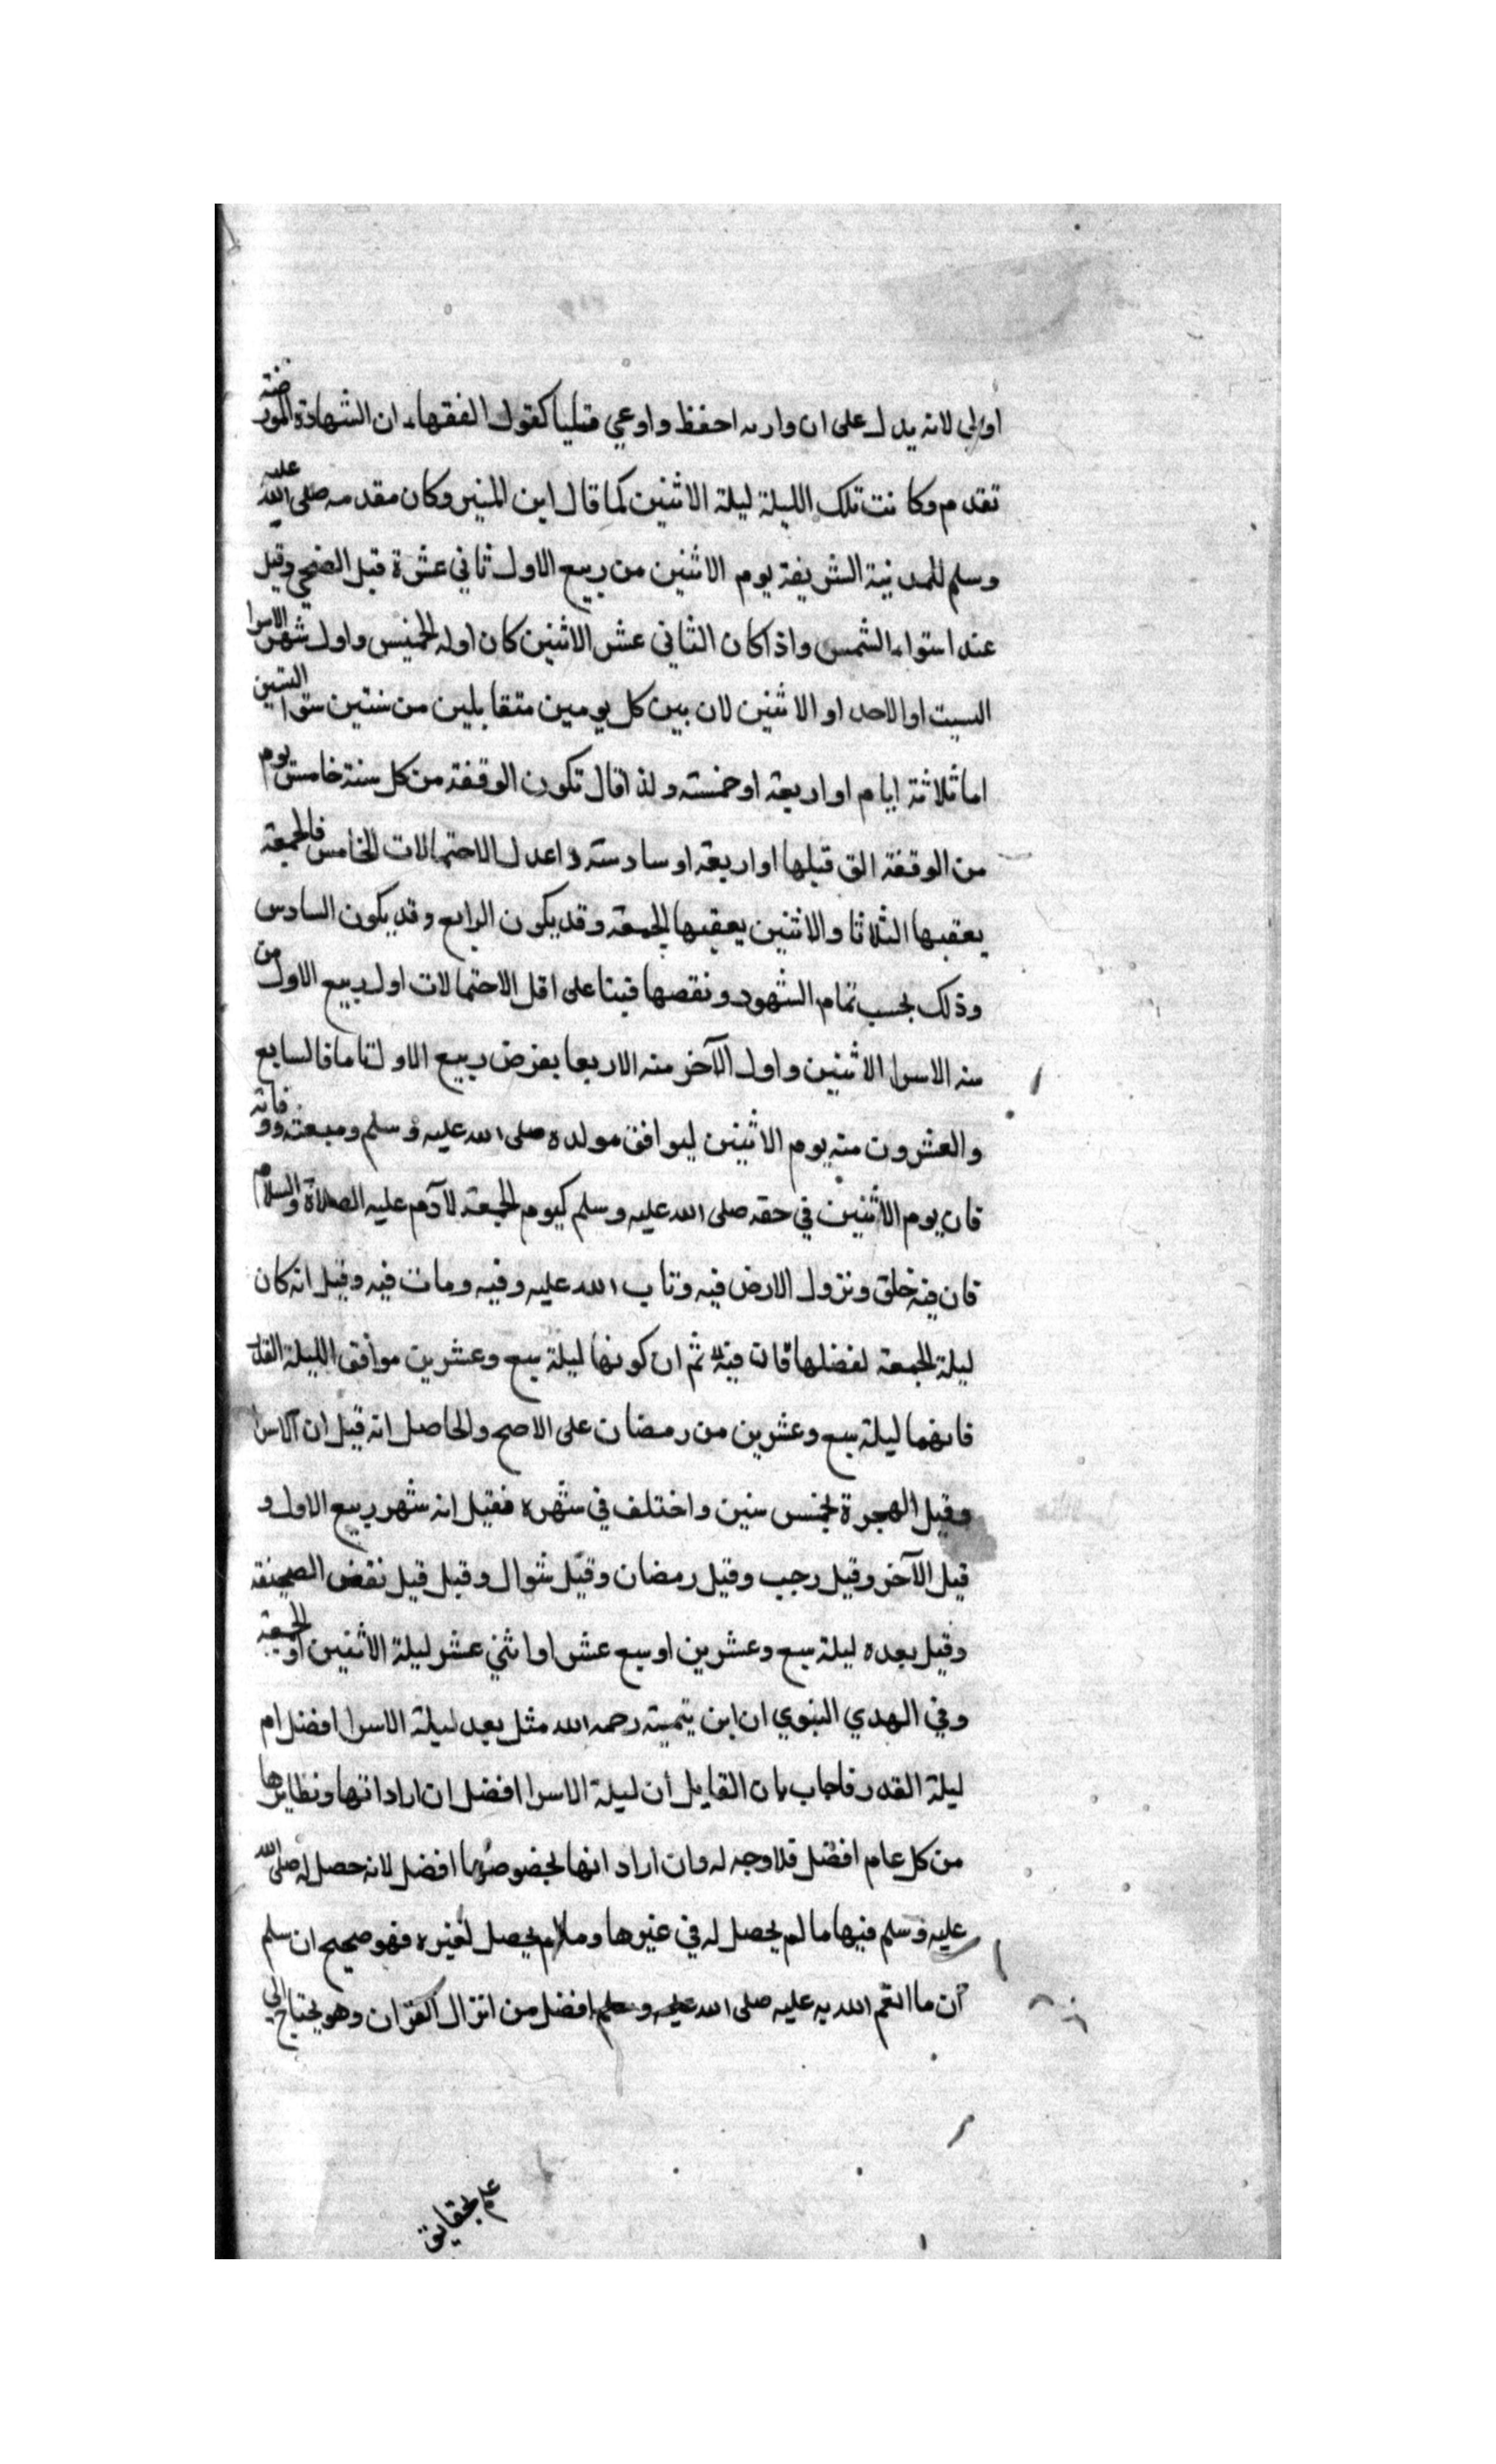 اولى لانه يدل على ان واريه احفظ واوعي قتليا كقول الفقهاء ان الشهادة المورخته
تقدم وكانت تلك الليلة ليلة الاثنين كما قال ابن المنير وكان مقدمه صلى الله عليه
وسلم للمدنية الشريفة يوم الاثنين من ربيع الاول ثاني عشرة قبل الضحي وقيل
عند استواء الشمس واذا كان الثاني عشر الاثنين كان اوله الخميس واول شهر الاسرا
السبت او الاحد او الاثنين لان بين كل يومين متقابلين من سنتين ستوا السنين
اما ثلاثة ايام او اربعة او خمسته ولذا قال تكون الوقفة من كل سنة خامس يوم
من الوقفة التى قبلها او اربعة او سادسته واعدل الاحتمالات الخامس فالجمعة
يعقبها الثلاثا والاثنين يعقبها الجمعة وقد يكون الرابع وقد يكون السادس
وذلك بحسب تمام الشهود ونقصها فبنا على اقل الاحتمالات اول ربيع الاول من
منه الاسرا الاثنين واول الآخر منه الاربعا بفرض ربيع الاول تاما فالسابع
والعشرون منه يوم الاثنين ليوافق مولده صلى الله عليه وسلم ومبعثه ووفاته
فان يوم الاثنين في حقه صلى الله عليه وسلم كيوم الجمعة لآدم عليه الصلاة والسلام
فان فيه خلق ونزول الارض فيه وتاب الله عليه وفيه ومات فيه وقيل انه كان
ليلة الجمعة لفضلها فان فيه ثم ان كونها ليلة سبع وعشرين موافق الليلة القدر
فانهما ليلة سبع وعشرين من رمضان على الاصح والحاصل انه قيل ان الاسرا
وقيل الهجرة بخمس سنين واختلف في شهره فقيل انه شهر ربيع الاول و
قيل الآخر وقيل رجب وقيل رمضان وقيل شوال وقيل قبل نقض الصحيفة
وقيل بعده ليلة سبع وعشرين او سبع عشر او اثني عشر ليلة الاثنين او الجمعة
وفي الهدي النبوي ان ابن يتمية رحمه الله مثل بعد ليلة الاسرا افضل ام
ليلة القدر فاجاب بان القايل أن ليلة الاسرا افضل ان اراد انها ونظايرها
من كل عام افضل فلا وجه له وان اراد انها بخصوصها افضل لانه حصل له صلى الله
عليه وسلم فيها ما لم يحصل له في غيرها وما لم يحصل لغيره فهو صحيح ان سلم
أن ما انعم الله به عليه صلى الله عليه وسلم افضل من انزال القرآن وهو يحتاج الى
علم بحقايق